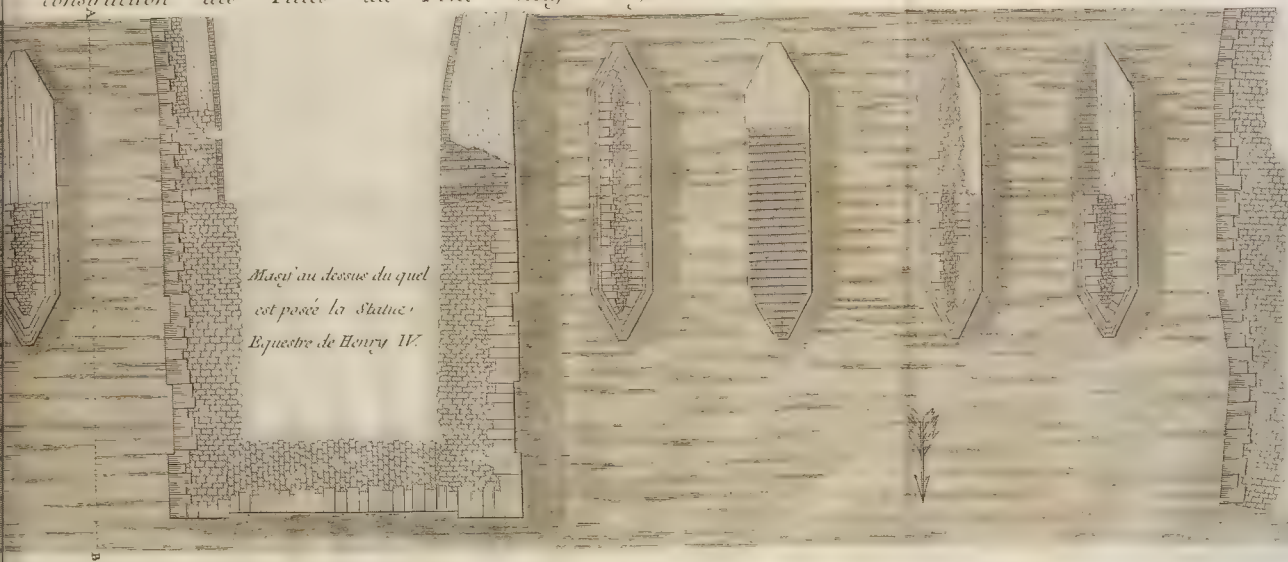 construction des Piles du Pont Neuf
A
Maçif au dessus du quel
est posée la Statue
Equestre de Henry IV.
B